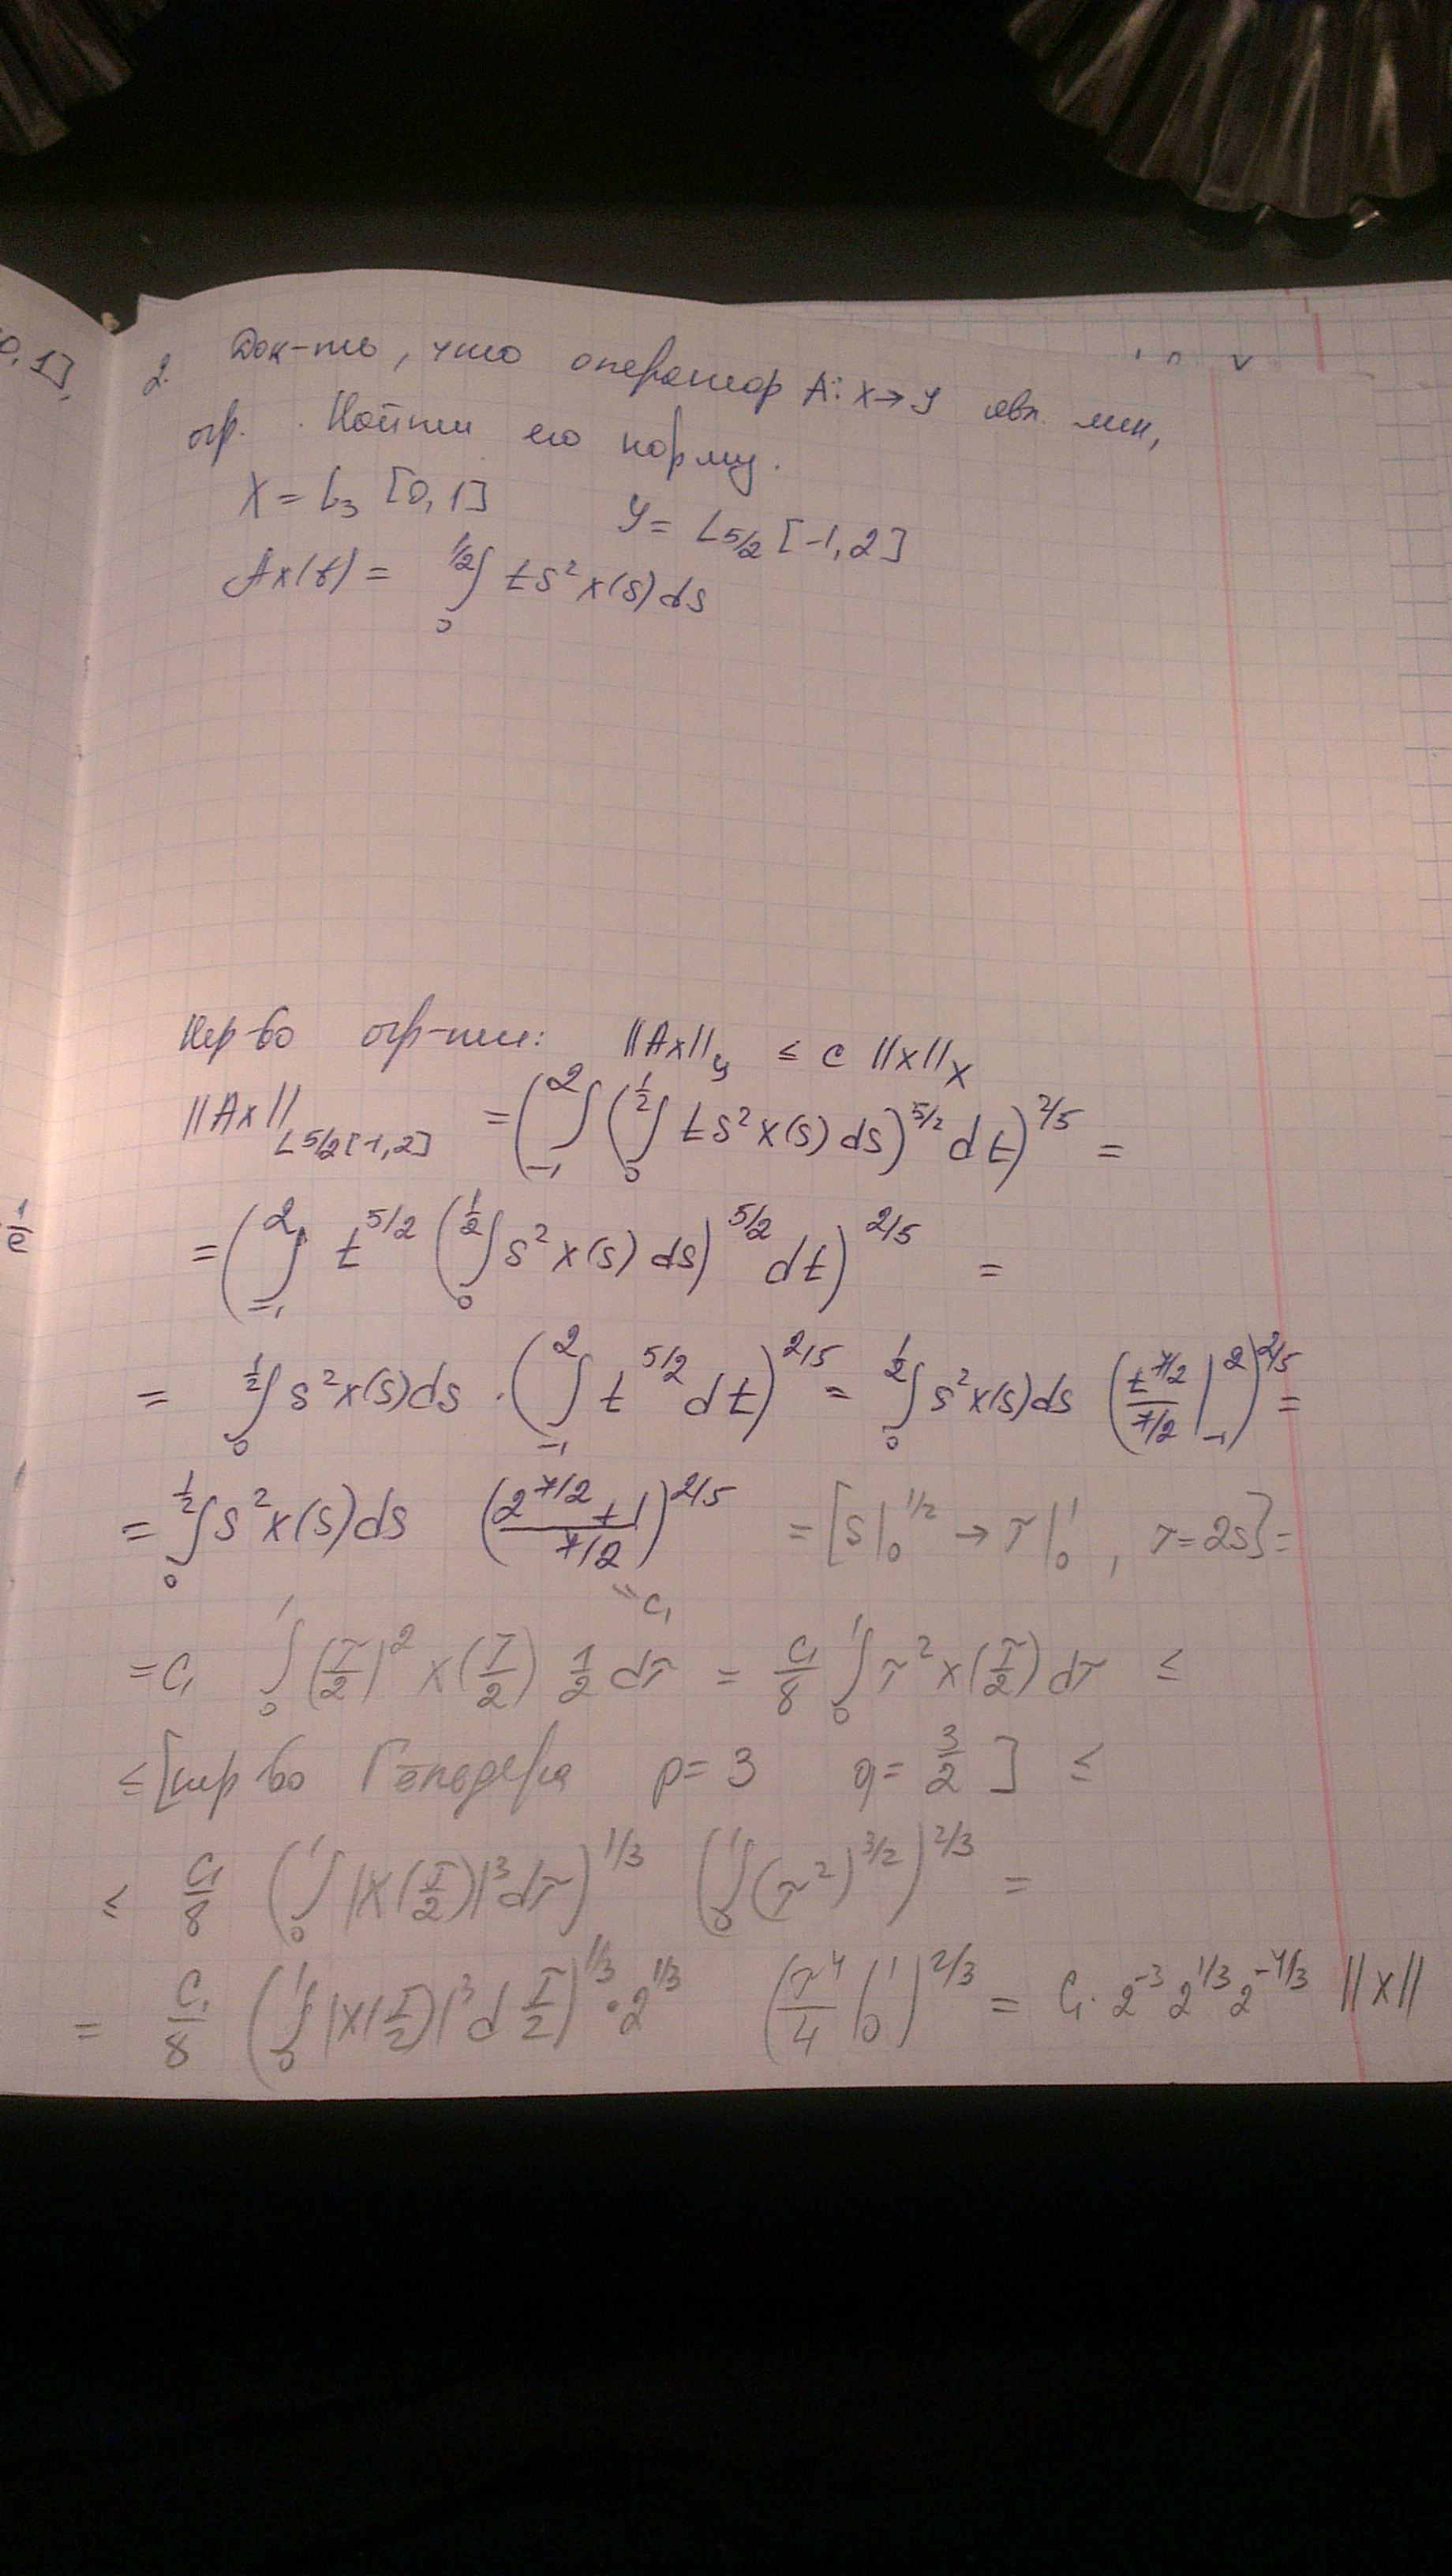 0,1]
2. Док-ть, что оператор A: X→Y явл. лин,
огр. Найти его норму.
X = L₃ [0,1] Y = L₅/₂ [-1,2]
Ax(t) = ∫₀^{1/2} ts²x(s)ds
Нер-во огр-ти: ||Ax||_Y ≤ c ||x||_X
||Ax||_{L5/2[-1,2]} = (∫_{-1}^{2} (∫₀^{1/2} ts²x(s)ds)^{5/2} dt)^{2/5} =
= (∫_{-1}^{2} t^{5/2} (∫₀^{1/2} s²x(s)ds)^{5/2} dt)^{2/5} =
1/e
= ∫₀^{1/2} s²x(s)ds · (∫_{-1}^{2} t^{5/2} dt)^{2/5} = ∫₀^{1/2} s²x(s)ds (t^{7/2}/(7/2) |_{-1}^{2})^{2/5} =
= ∫₀^{1/2} s²x(s)ds ((2^{7/2}+1)/(7/2))^{2/5} = [s|₀^{1/2} → τ|₀^1, τ=2s] =
= c₁
= c₁ ∫₀^1 (τ/2)² x(τ/2) 1/2 dτ = c₁/8 ∫₀^1 τ² x(τ/2) dτ ≤
≤ [нер-во Гёльдера p = 3 q = 3/2] ≤
≤ c₁/8 (∫₀^1 |x(τ/2)|³dτ)^{1/3} (∫₀^1 (τ²)^{3/2})^{2/3} =
= c₁/8 (∫₀^1 |x(τ/2)|³ d τ/2)^{1/3} · 2^{1/3} (τ⁴/4 |₀^1)^{2/3} = c₁ · 2^{-3} 2^{1/3} 2^{-4/3} ||x||